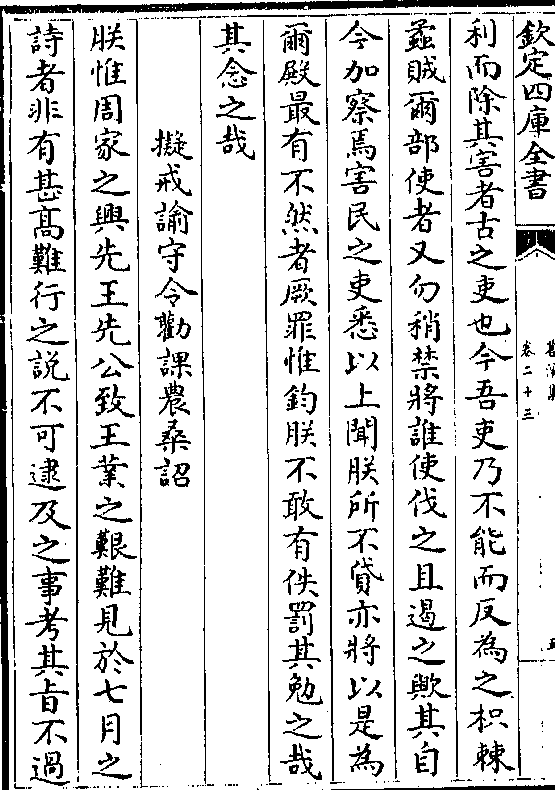 欽定四庫全書
卷二十三
利而除其害者古之吏也今吾吏乃不能而反為之枳棘
蟊賊爾部使者又勿稍禁將誰使伐之且遏之歟其自
今加察焉害民之吏悉以上聞朕所不貸亦將以是為
爾殿最有不然者厥罪惟鈞朕不敢有佚罰其勉之哉
其念之哉
擬戒諭守令勸課農桑詔
朕惟周家之興先王先公致王業之艱難見於七月之
詩者非有甚高難行之說不可逮及之事考其旨不過